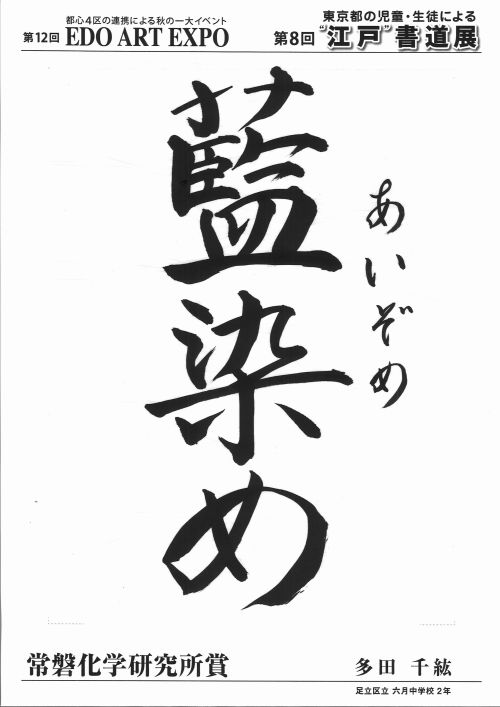 都心4区の連携による秋の一大イベント
第12回 EDO ART EXPO
東京都の児童・生徒による
第8回 "江戸"書道展
藍染め
あいぞめ
常磐化学研究所賞
多田 千紘
足立区立 六月中学校 2年